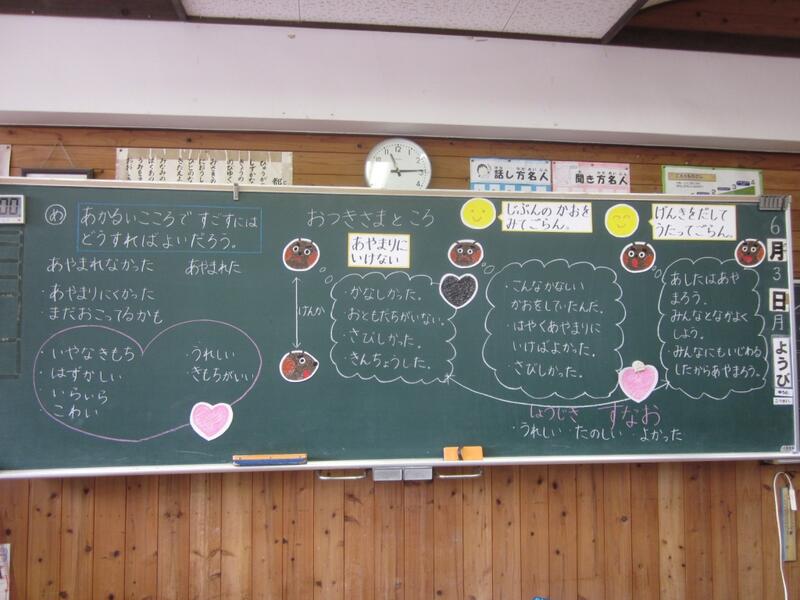 め
あかるいこころで すごすには
どうすればよいだろう。
あやまれなかった
あやまれた
・あやまりにくかった
・まだおこってるかも
・いやなきもち
・はずかしい
・いらいら
・こわい
・うれしい
きもちがいい
おつきさまところ
あやまりに
いけない
けんか
・かなしかった。
・おともだちがいない。
・さびしかった。
・きんちょうした。
じぶんの かおを
みてごらん。
・こんなかなしい
かおをしていたんだ。
・はやくあやまりに
いけばよかった。
・さびしかった。
げんきをだして
うたってごらん。
あしたはあや
まろう。
・みんなとなかよく
しよう。
・みんなにもいじわる
したからあやまろう。
しょうじき すなお
・うれしい ・たのしい ・よかった
6
月
3
日
月
ようび
話し方名人
聞き方名人
00